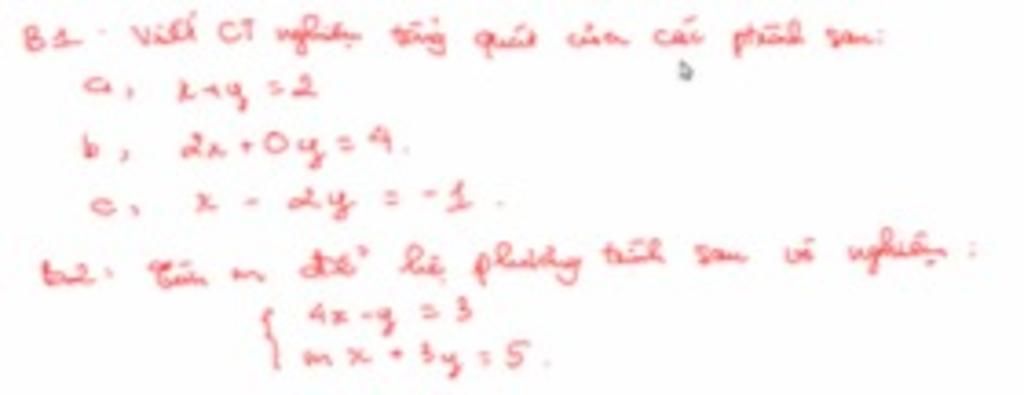 B1. Viết CT nghiệm tổng quát của các ptrình sau:
a, x+y = 2
b, 2x + 0y = 4.
c, x - 2y = -1.
B2. Tìm m để hệ phương trình sau vô nghiệm:
4x - y = 3
mx + 3y = 5.